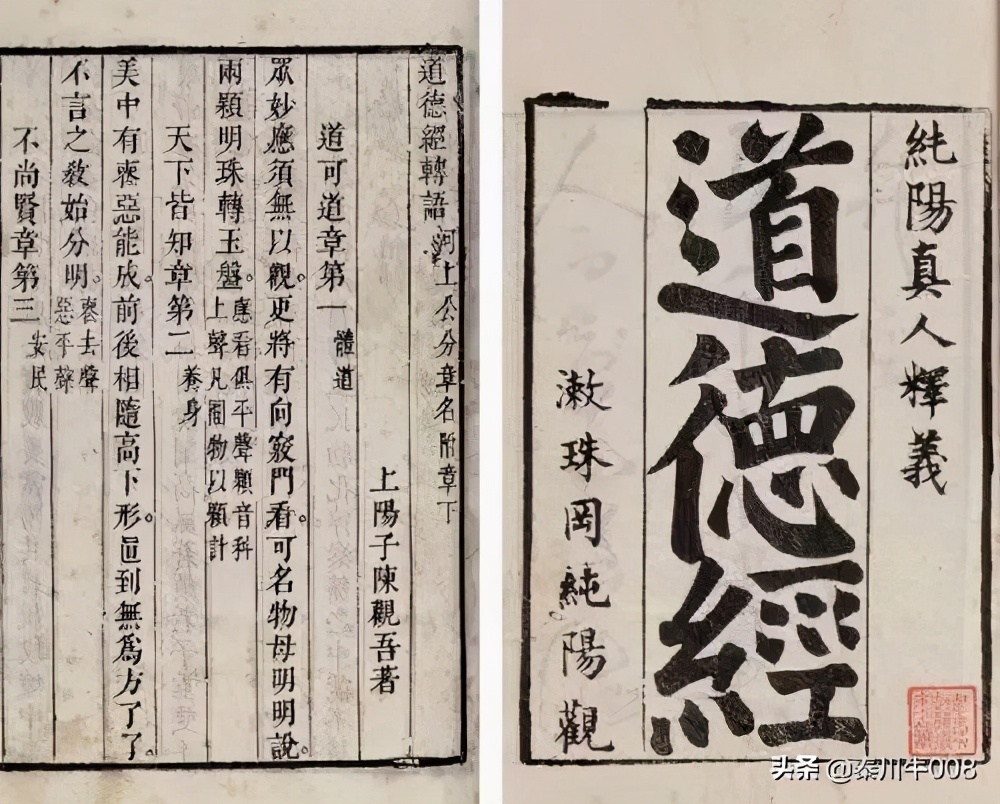 純陽真人釋義
道德經
漱珠岡純陽觀
道德經轉語 河上公分章名附章下
上陽子陳觀吾著
道可道章第一 體道
眾妙應須無以觀。更將有向竅門看。可名物母明明說。
兩顆明珠轉玉盤。應看俱平聲顆音科
上聲凡圓物以顆計
天下皆知章第二 養身
美中有喪惡能成。前後相隨高下形。直到無爲方了了。
不言之敎始分明。喪去聲
惡平聲
不尚賢章第三 安民
头条 @泰川牛008